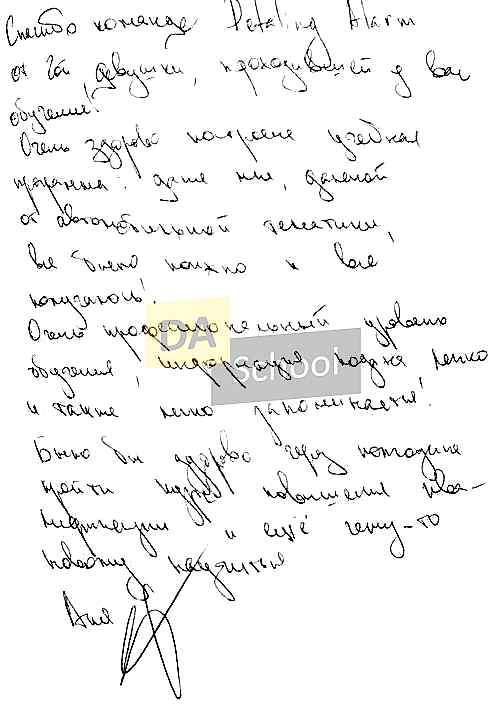 Спасибо команде Detailing Alarm
от 2ой девушки, проходившей у вас
обучение!
Очень здорово построена учебная
программа: даже мне, далекой
от автомобильной тематики,
все было понятно и все
получалось!
Очень профессиональный уровень
обучения, информация подана легко
и также легко запоминается!
Было бы здорово через полгодика
пройти курс повышения ква-
лификации и ещё чему-то
новому научиться
Аня
DA
School